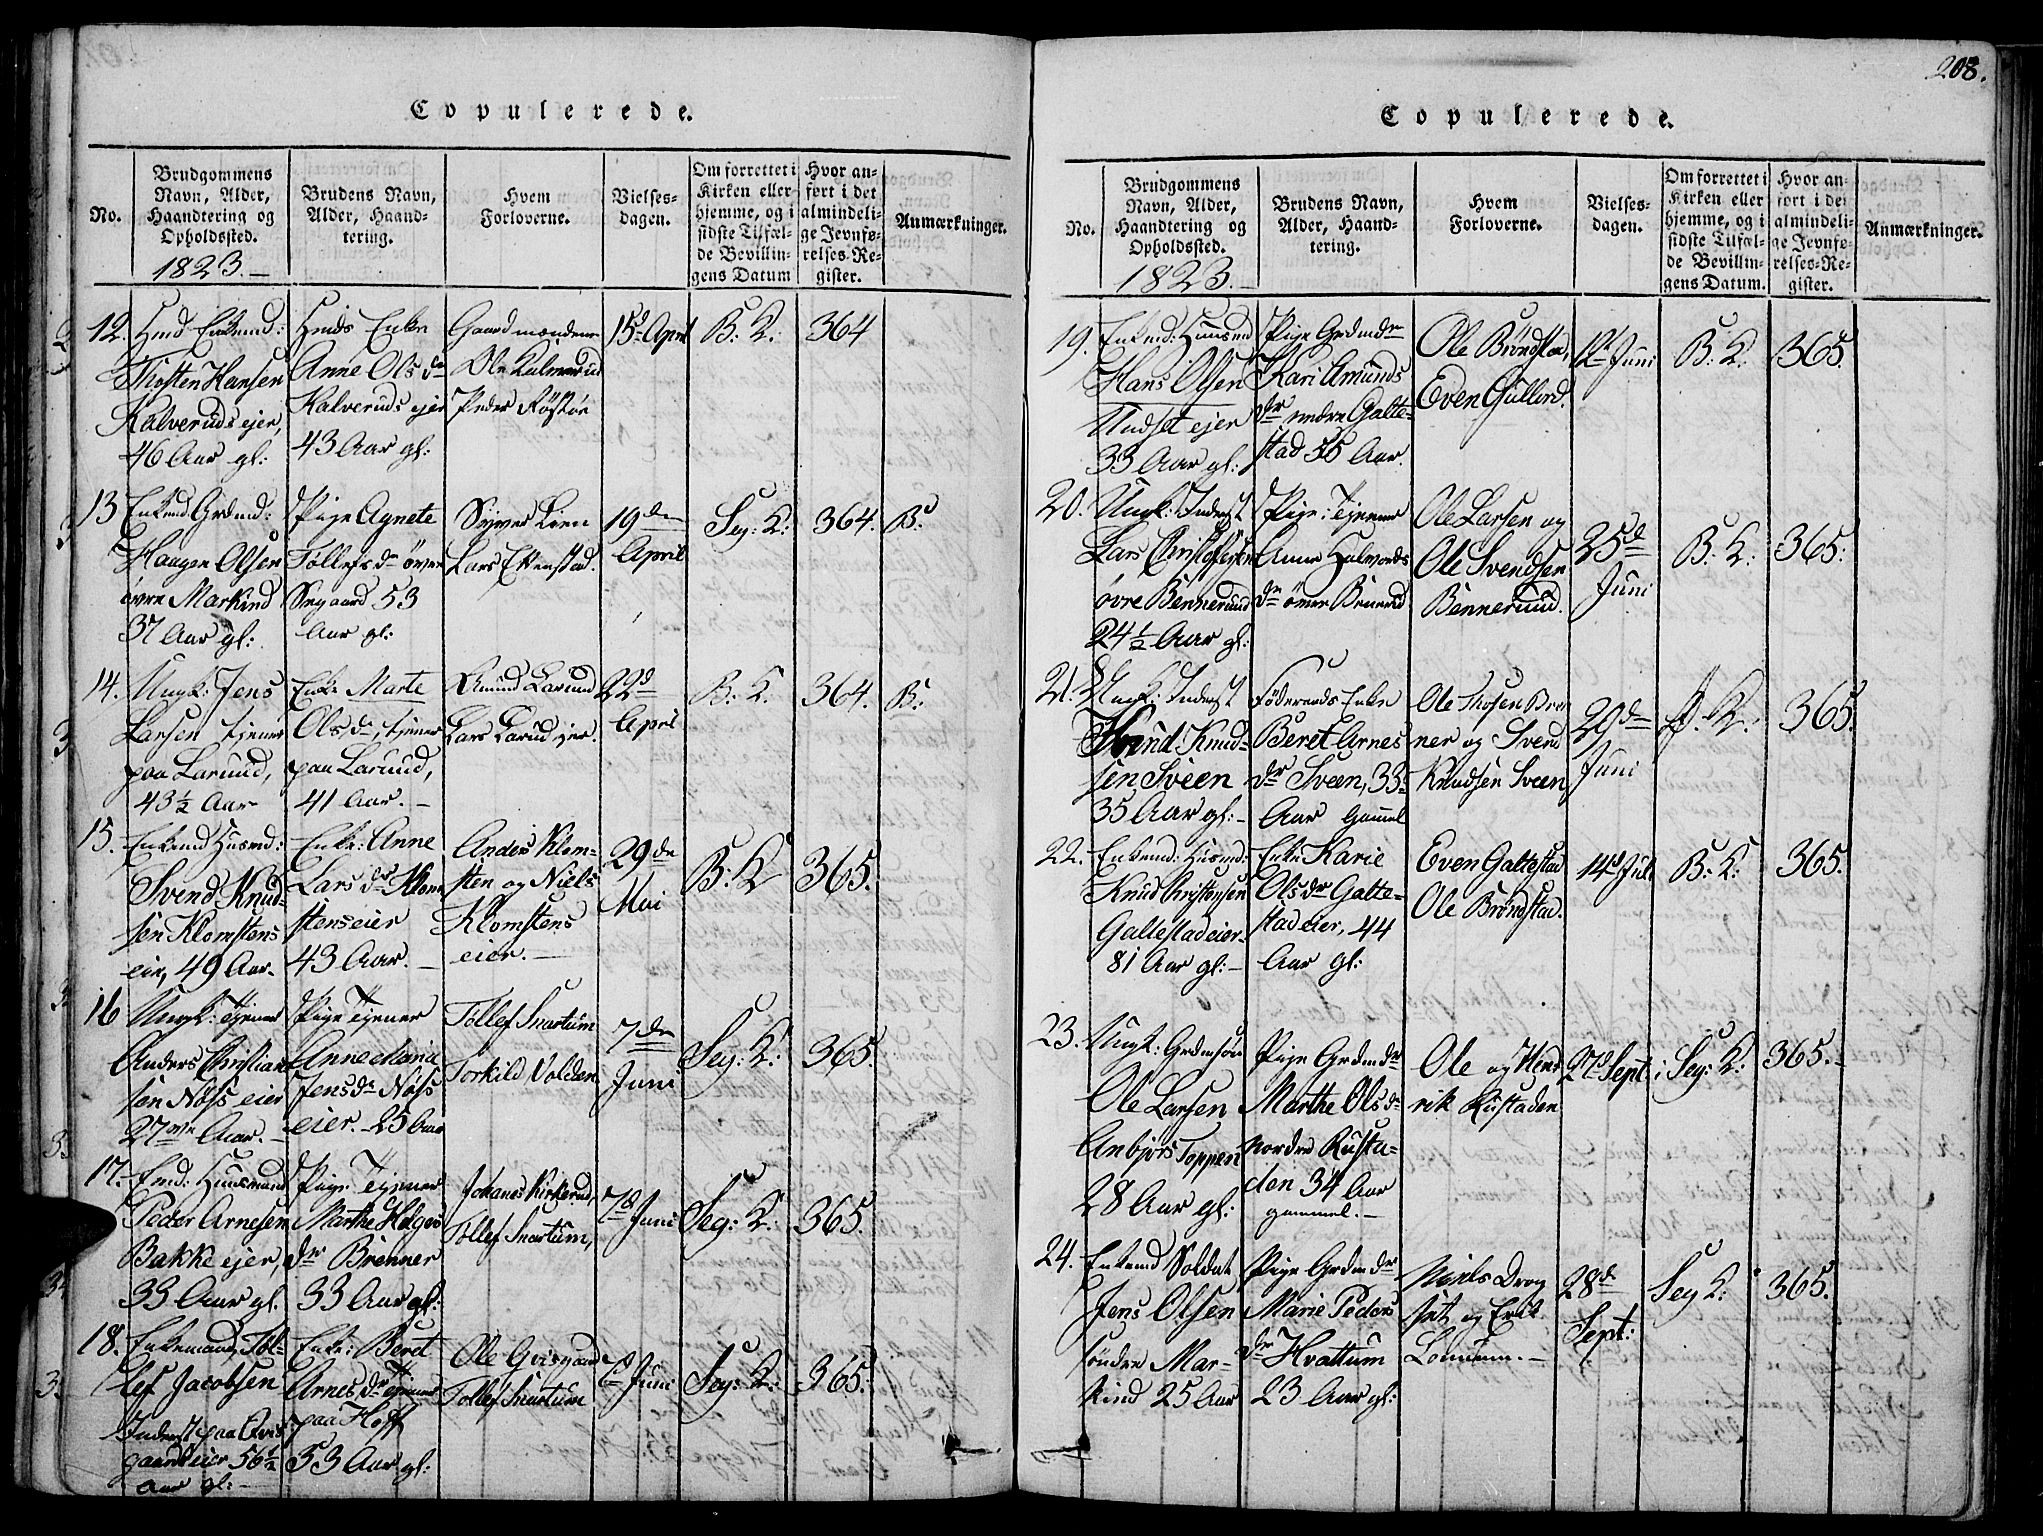 208.
Copulerede.
No.
Brudgommens
Navn, Alder,
Haandtering og
Opholdssted.
1823.
Brudens Navn,
Alder, Haand-
tering.
Hvem
Forloverne.
Vielses-
dagen.
Om forrettet i
Kirken eller
hjemme, og i
sidste Tilfæl-
de Bevillin-
gens Datum
Hvor an-
ført i det
almindeli-
ge Jevnfø-
relses-Re-
gister.
Anmærkninger.
12.
Enkemd:
Thosten Hansen
Kalveruds ejer,
46 Aar gl:
Enke
Anne Ols dr
Kalveruds ejer
43 Aar gl:
Gaardmændene
Ole
Peder Røstøe
15d April
B: K:
364
13
Enkemd Grdmd:
Haagen Olsen
øvre Markind
37 Aar gl:
Pige Agnete
Tollefs dr øvre
Segaard 53
Aar gl:
Syver Lien
Lars Ekenstad.
19de
April
Seg: K:
364.
B:
14.
Ungk: Jens
Larsen tjener
paa Larund,
43½ Aar
Enke Marte
Ols dr, tjener
paa Larund,
41 Aar.
Amund Larund
Lars Larud ejer.
22d
April
B: K:
364.
B:
15.
Enkemd Husmd:
Svend Knud-
sen Klomstens
eier, 49 Aar.
Enke: Anne
Lars dr Klom
stens eier
43 Aar.
Anders Klom-
sten og Niels
Klomstens
eier.
29de
Mai
B: K
365.
16
Ungk: tjener
Anders Christian
sen Nøss eier
27 Aar.
Pige Tjener
Anne Maria
Jens dr Nøss
eier. 25 Aar
Tollef Snartum
Torkild Volden
7de
Juni
Seg: K:
365.
17.
Emd: Huusmand
Peder Arnesen
Bakke ejer,
33 Aar gl.
Pige Tjener
Marthe Helges
dr Brenner
33 Aar gl:
Johanes Kirkerud,
Tollef Snartum,
7d Juni
Seg: K:
365.
18.
Enkemand, Tol-
lef Jacobsen
Inderst paa Qvis
gaard eier 56½
Aar gl:
Enke: Beret
Arnes dr tjener
paa Hoff
53 Aar gl:
Ole Qvisgaard
Tollef Snartum
7d Juni
Seg: K:
365.
Copulerede.
No.
Brudgommens
Navn, Alder,
Haandtering og
Opholdssted.
1823.
Brudens Navn,
Alder, Haand-
tering.
Hvem
Forloverne.
Vielses-
dagen.
Om forrettet i
Kirken eller
hjemme, og i
sidste Tilfæl-
de Bevillin-
gens Datum.
Hvor an-
ført i det
almindeli-
ge Jevnfø-
relses-Re-
gister.
Anmærkninger.
19.
Enkemd: Huusmd
Hans Olsen
Udset ejer
33 Aar gl:
Pige Grdmdr
Kari Amunds
dr nedre Galte-
stad 35 Aar.
Ole Brøndstad,
Even Gullord.
12d Juni
B: K.
365.
20.
Ungk: Inderst
Lars Christophersen
øvre Bennerund
24½ Aar gl:
Pige: Tjener
Anne Halvords
dr øvre Benerud
Ole Larsen og
Ole Svendsen
Bennerund.
25d
Juni
B. K:
365:
21.
Ungk: Inderst
Svend Knud-
sen Sveen
35 Aar gl:
Føderaads Enke
Beret Arnes
dr Sveen, 33
Aar gammel
Ole Thosen Bren
ner og Svend
Knudsen Sveen
29de
Juni
B. K:
365.
22.
Enkemd: Husmd:
Knud Christensen
Galtestad eier
81 Aar gl:
Enke Karie
Ols dr Galte-
stad eier, 44
Aar gl:
Even Galtestad
Ole Brøndstad.
14d Juli
B: K:
365.
23.
Ungk: Grdmsøn
Ole Larsen
Anbjørs Toppen
28 Aar gl:
Pige Grdmdr
Marthe Ols dr
nordre Rusta-
den 34 Aar
gammel.
Ole og Hend
rik Rustaden
27d Sept:
Seg: K:
365.
24.
Enkemd Soldat
Jens Olsen
søndre Mar-
kind 25 Aar
Pige Grdmdr
Marie Peders
dr Hvattum
23 Aar gl:
Niels Drog
set og Erik
Lomum.
28d
Sept:
Seg K:
365.